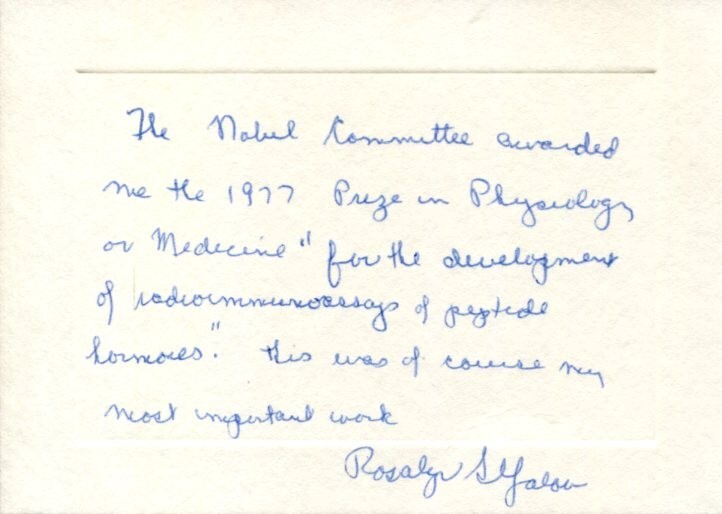 The Nobel Committee awarded
me the 1977 Prize in Physiology
or Medicine "for the development
of radioimmunoassays of peptide
hormones." This was of course my
most important work
Rosalyn S Yalow